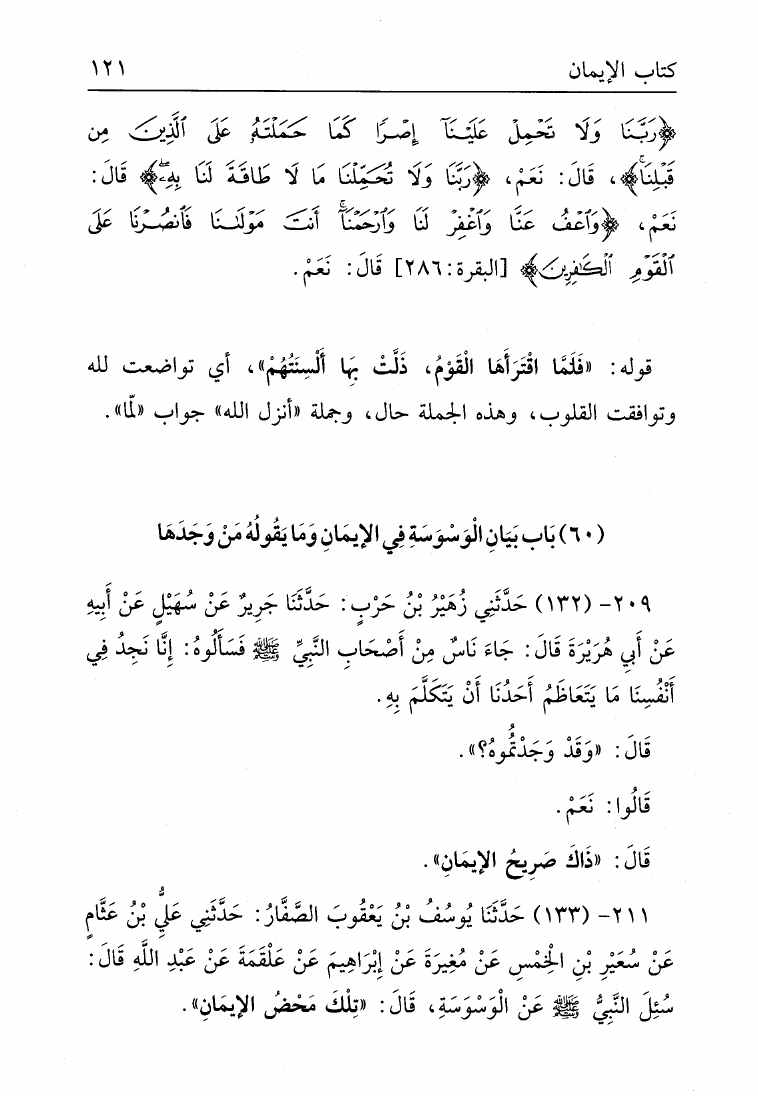 كتاب الإيمان ١٢١
﴿رَبَّنَا وَلَا تَحْمِلْ عَلَيْنَآ إِصْرًا كَمَا حَمَلْتَهُۥ عَلَى ٱلَّذِينَ مِن
قَبْلِنَاۚ﴾، قَالَ: نَعَمْ، ﴿رَبَّنَا وَلَا تُحَمِّلْنَا مَا لَا طَاقَةَ لَنَا بِهِۦۖ﴾ قَالَ:
نَعَمْ، ﴿وَٱعْفُ عَنَّا وَٱغْفِرْ لَنَا وَٱرْحَمْنَآۚ أَنتَ مَوْلَىٰنَا فَٱنصُرْنَا عَلَى
ٱلْقَوْمِ ٱلْكَٰفِرِينَ﴾ [البقرة:٢٨٦] قَالَ: نَعَمْ.
قوله: «فَلَمَّا اقْتَرَأَهَا الْقَوْمُ، ذَلَّتْ بِهَا أَلْسِنَتُهُمْ»، أي تواضعت لله
وتوافقت القلوب، وهذه الجملة حال، وجملة «أنزل الله» جواب «لمّا».
(٦٠) بَاب بَيَانِ الْوَسْوَسَةِ فِي الإِيمَانِ وَمَا يَقُولُهُ مَنْ وَجَدَهَا
٢٠٩- (١٣٢) حَدَّثَنِي زُهَيْرُ بْنُ حَرْبٍ: حَدَّثَنَا جَرِيرٌ عَنْ سُهَيْلٍ عَنْ أَبِيهِ
عَنْ أَبِي هُرَيْرَةَ قَالَ: جَاءَ نَاسٌ مِنْ أَصْحَابِ النَّبِيِّ ﷺ فَسَأَلُوهُ: إِنَّا نَجِدُ فِي
أَنْفُسِنَا مَا يَتَعَاظَمُ أَحَدُنَا أَنْ يَتَكَلَّمَ بِهِ.
قَالَ: «وَقَدْ وَجَدْتُمُوهُ؟».
قَالُوا: نَعَمْ.
قَالَ: «ذَاكَ صَرِيحُ الإِيمَانِ».
٢١١- (١٣٣) حَدَّثَنَا يُوسُفُ بْنُ يَعْقُوبَ الصَّفَّارُ: حَدَّثَنِي عَلِيُّ بْنُ عَثَّامٍ
عَنْ سُعَيْرِ بْنِ الْخِمْسِ عَنْ مُغِيرَةَ عَنْ إِبْرَاهِيمَ عَنْ عَلْقَمَةَ عَنْ عَبْدِ اللَّهِ قَالَ:
سُئِلَ النَّبِيُّ ﷺ عَنْ الْوَسْوَسَةِ، قَالَ: «تِلْكَ مَحْضُ الإِيمَانِ».